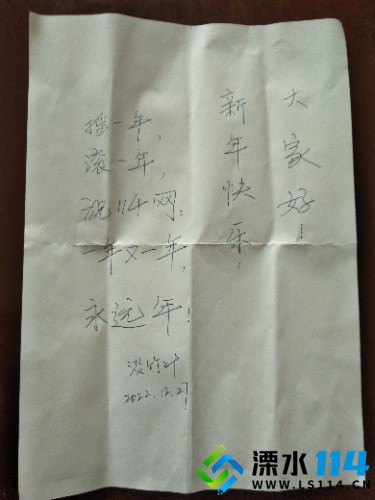 大家好！
新年快乐！
摇一年，
滚一年，
祝114网：
一年又一年，
永远年！
2022.12.27
溧水114
WWW.LS114.CN